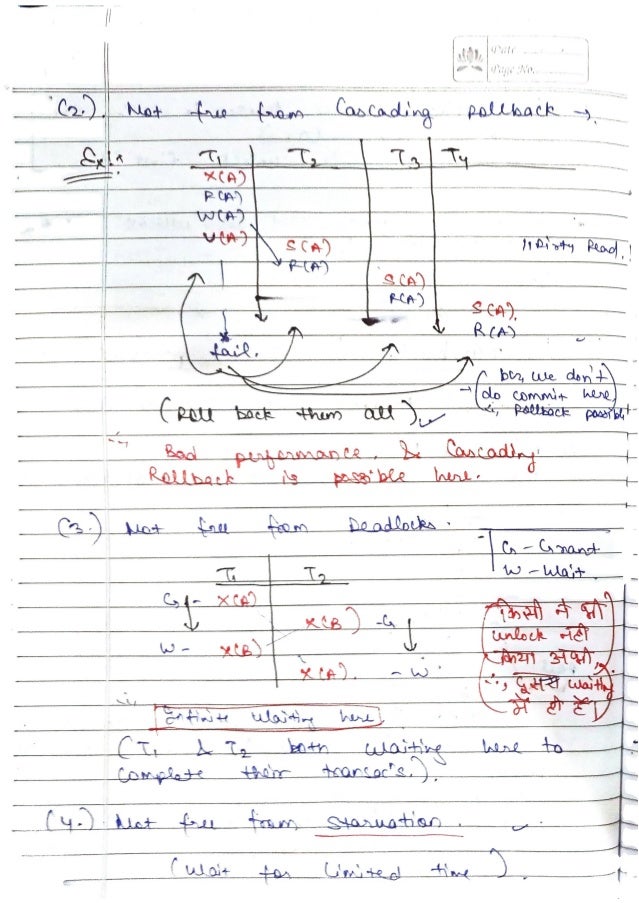 Date
Page No.
(2.) Not free from Cascading Rollback →
Ex!:
T1 T2 T3 T4
X(A)
R(A)
W(A)
U(A) S(A)
R(A)
11 Dirty Read.!
S(A)
R(A)
S(A).
R(A)
fail.
→ (bcz, we don't
do commit here
∴, Rollback possible
(Roll back them all)
∴ Bad performance. & Cascading
Rollback is possible here.
(3.) Not free from Deadlocks.
G - Grant
W - Wait.
T1 T2
G - X(A)
X(B) - G
W - X(B)
X(A). - W
किसी ने भी
unlock नही
किया अभी,
∴, दूसरा waiting
में ही है।
∴ Infinite waiting here
(T1 & T2 both waiting here to
complete their transac's.).
(4.) Not free from Starvation.
(Wait for limited time)